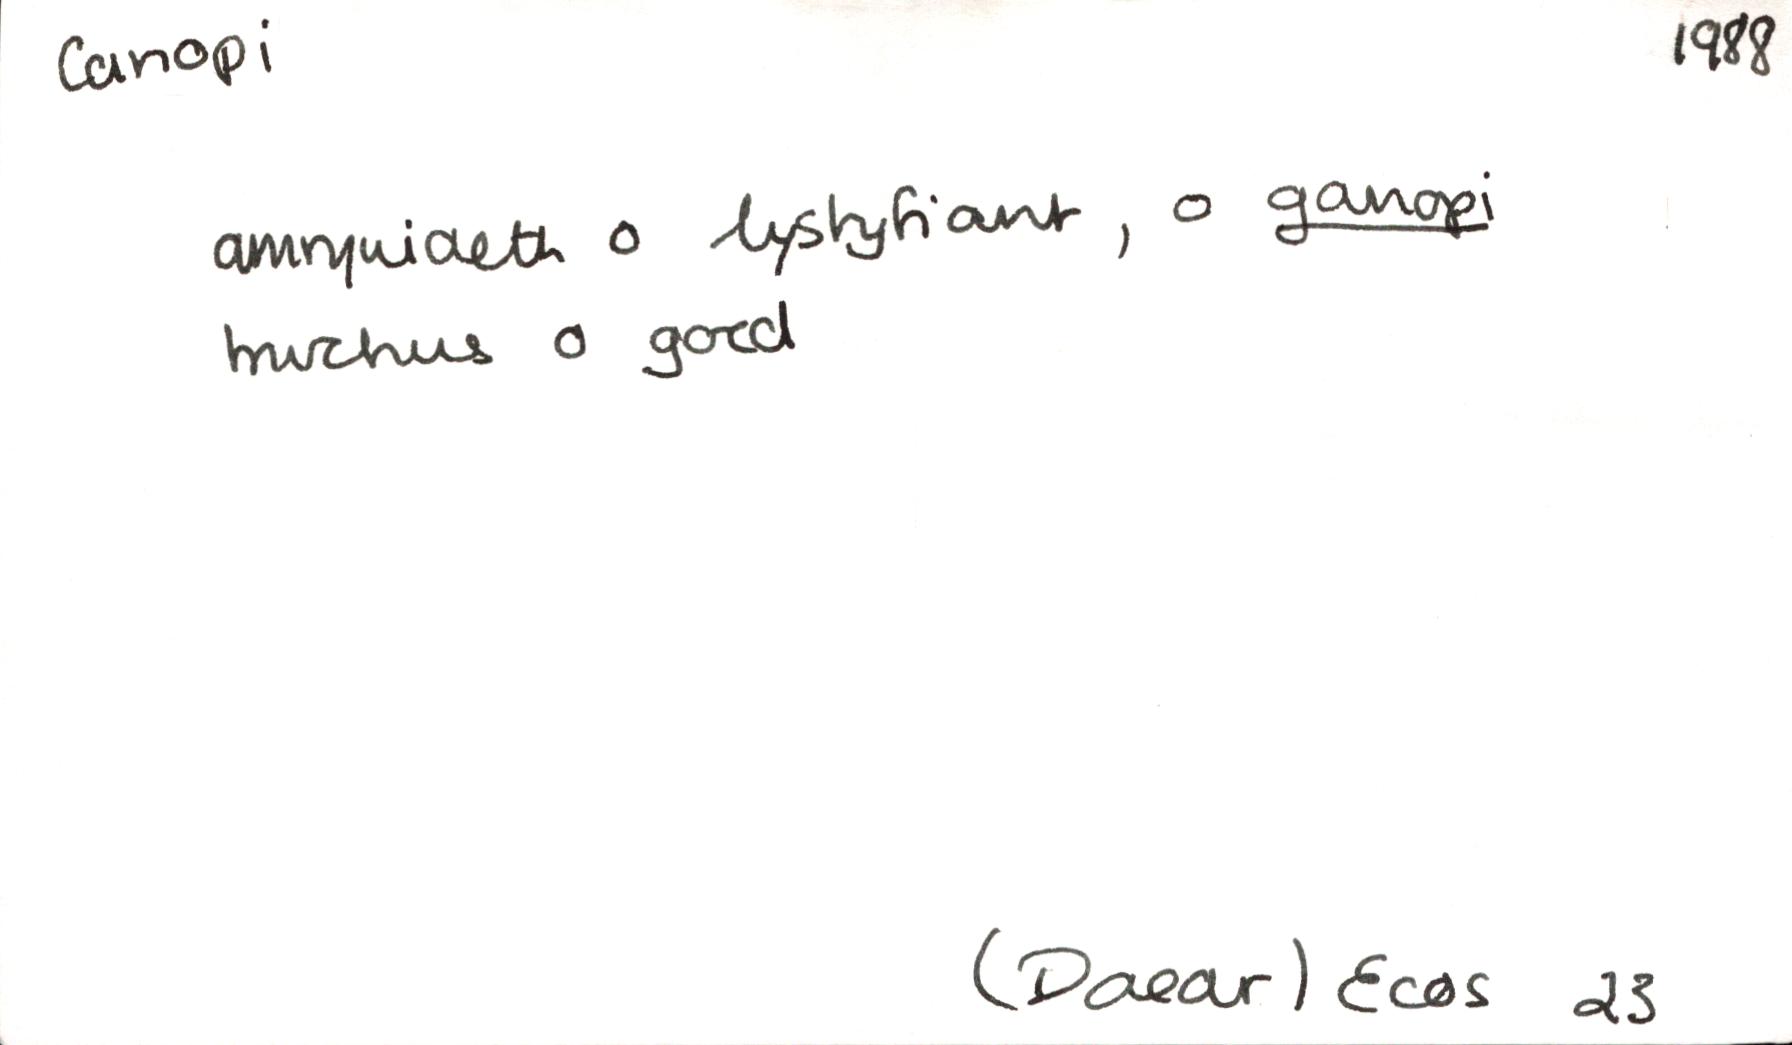 Canopi 1988
amrywiaeth o dystyfiant, o ganopi
trwchus o goed
(Daear) Ecos 23